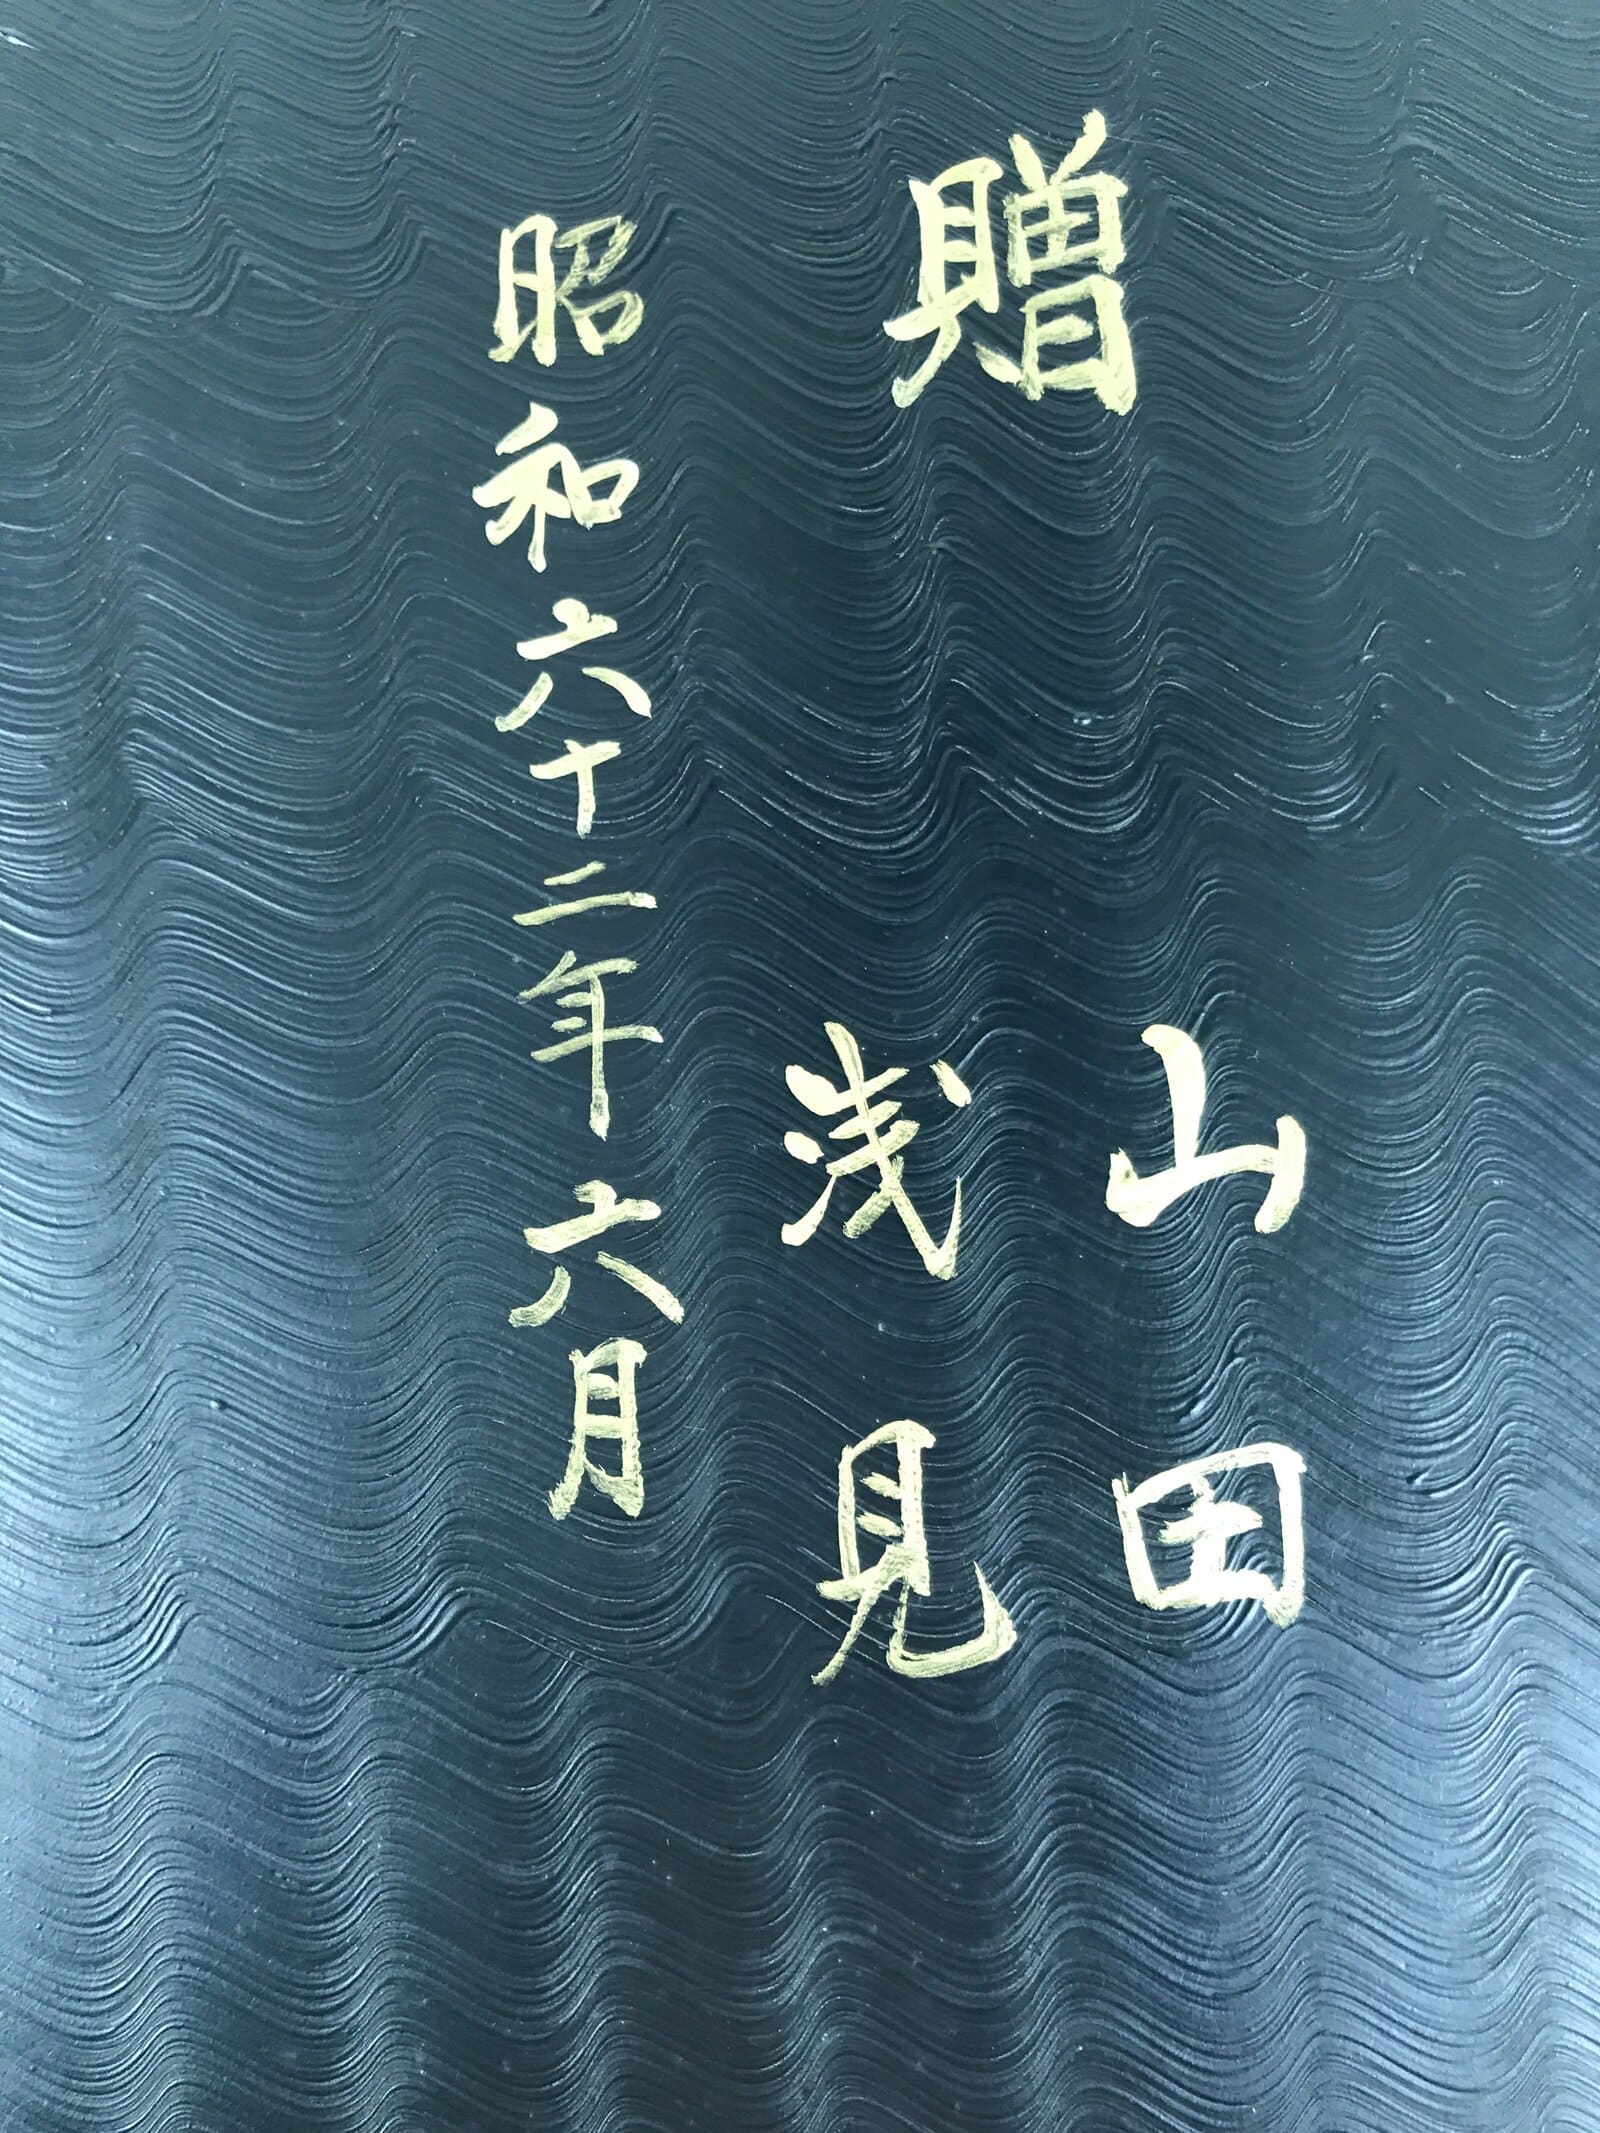 贈
山田
浅見
昭和六十二年六月